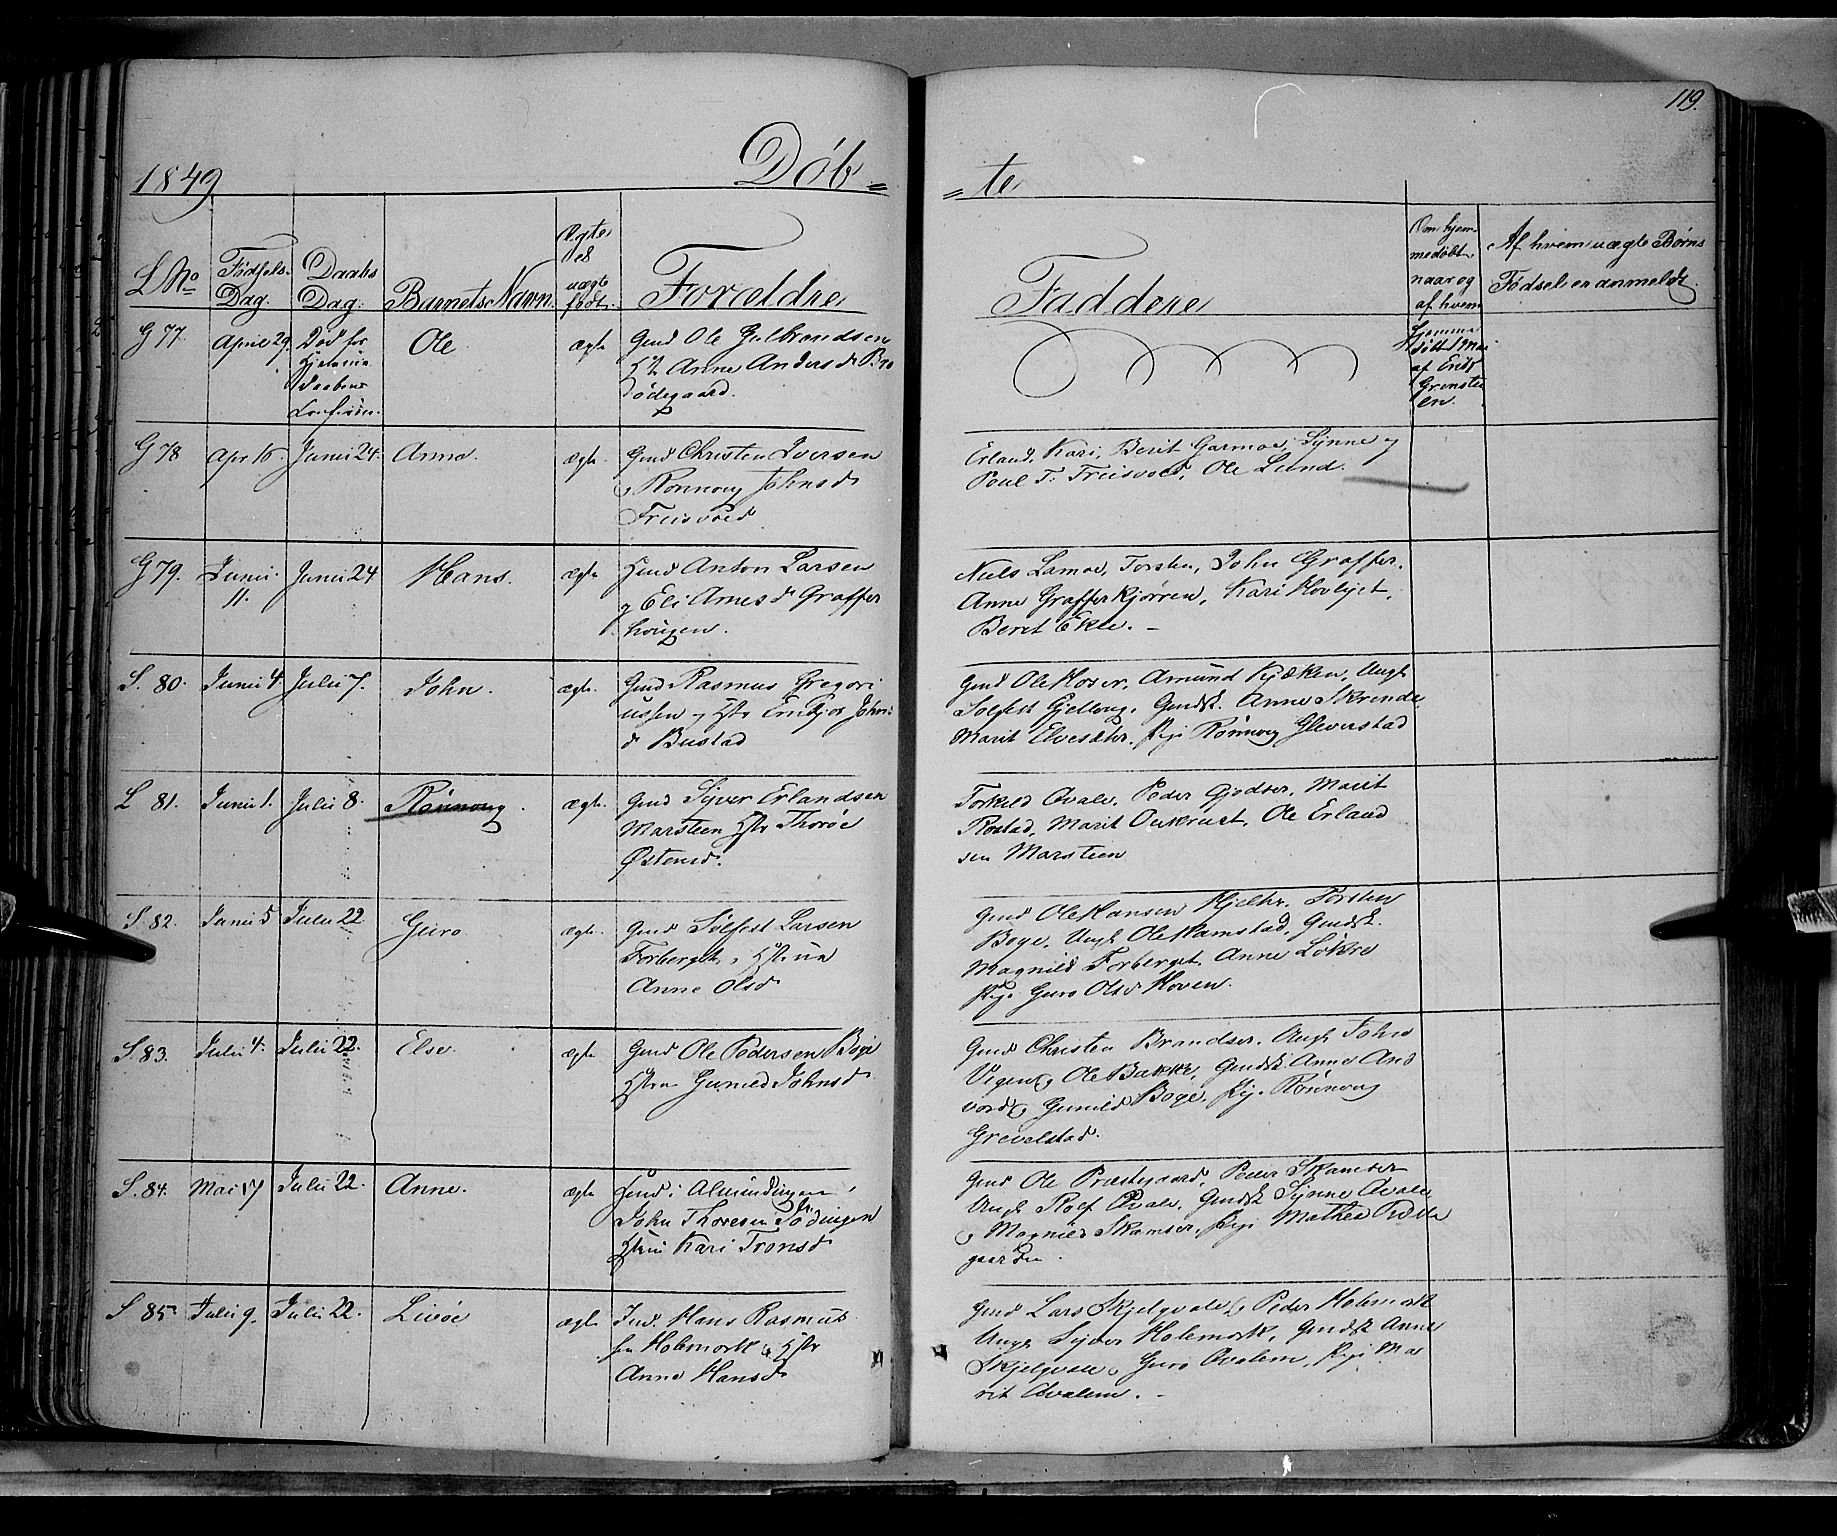 119.
1849 Döb= =te
L No
Födsels-
Dag.
Daabs
Dag.
Barnets Navn.
Ægte
el
uægte
födt.
Forældre
Faddere
Om hjem-
medöbt,
naar og
af hvem
Af hvem uægte Börns
Födsel er anmeldt.
G 77. April 29. Död for
Ole ægte Gmd Ole Gulbrandsen
Anne Andersd Bro
ödegaard.
Hjemme
döbt 1 Mai
af
en.
G 78 Apr 16. Junii 24. Anne. ægte. Gmd Christen Iversen
Rönnoug Johnsd
Friisvold
Erland, Kari, Berit Garmoe, Synne og
Poul T. Friisvold, Ole Lund.
G 79. Junii
11.
Junii 24 Hans. ægte Anton Larsen
og Eli Arnesd Graffer
hougen.
Niels Lamoe, Torsten, John Graffer,
Anne Grafferkjörren, Kari
Berit Ekle. -
S. 80. Junii 4. Julii 7. John. ægte. Gmd Rasmus Gregori
ussen og Hstr Johns
d Bustad
Gmd Ole Moser, Amund Kjæken, Ungk
Solfest Gjelloug, Gmdsk. Anne Skrende
Marit Elvesæter, Pige Rönnoug Gleverstad
L 81. Junii 1. Julii 8. Rönnoug. ægte. Gmd Syver Erlandsen
Marsteen Hstr Thoröe
Östensd.
Torkild Qvale, Peder Gjedser, Marit
Rostad, Marit Oukrust, Ole Erland
sen Marsteen
S. 82. Junii 5 Julii 22 Guro ægte. Gmd Solfest Larsen
Forberget, Hstruen
Anne Olsd
Gmd Ole Hansen Hjeltar, Torsten
Böye, Ungk Ole Hamstad, Gmdsk.
Magnild Forberget, Anne Lökre
Pige Guro Olsd Hoven.
S. 83. Julii 4. Julii 22. Else. ægte Gmd Ole Pedersen Böye
Hstru Gunild Johnsd
Gmd Christen Brandser, Ungk John
Vigen og Ole Bakke, Gmdsk. Anne And
vord og Gunild Böye, Pige Rönnoug
Grevelstad.
S. 84. Mai 17 Julii 22. Anne. ægte Gmd i Almindingen
John Thoresen Södingen
Hstru Kari Tronsd
Gmd Ole Præstgaard, Peder Skamser
Ungk Rolf Qvale, Gmdsk Synne Qvale
og Magnild Skamser, Pige Mathea
gaarden.
S 85 Julii 9. Julii 22. Livöe ægte Ind. Hans Rasmus
sen Holemork og Hstr
Anne Hansd
Gmd Lars Skjelqvale og Peder Holemork
Ungk Syver Holemork, Gmdsk Anne
Skjelqvale og Guro Qvalem, Pige Ma
rit Qvalem. -